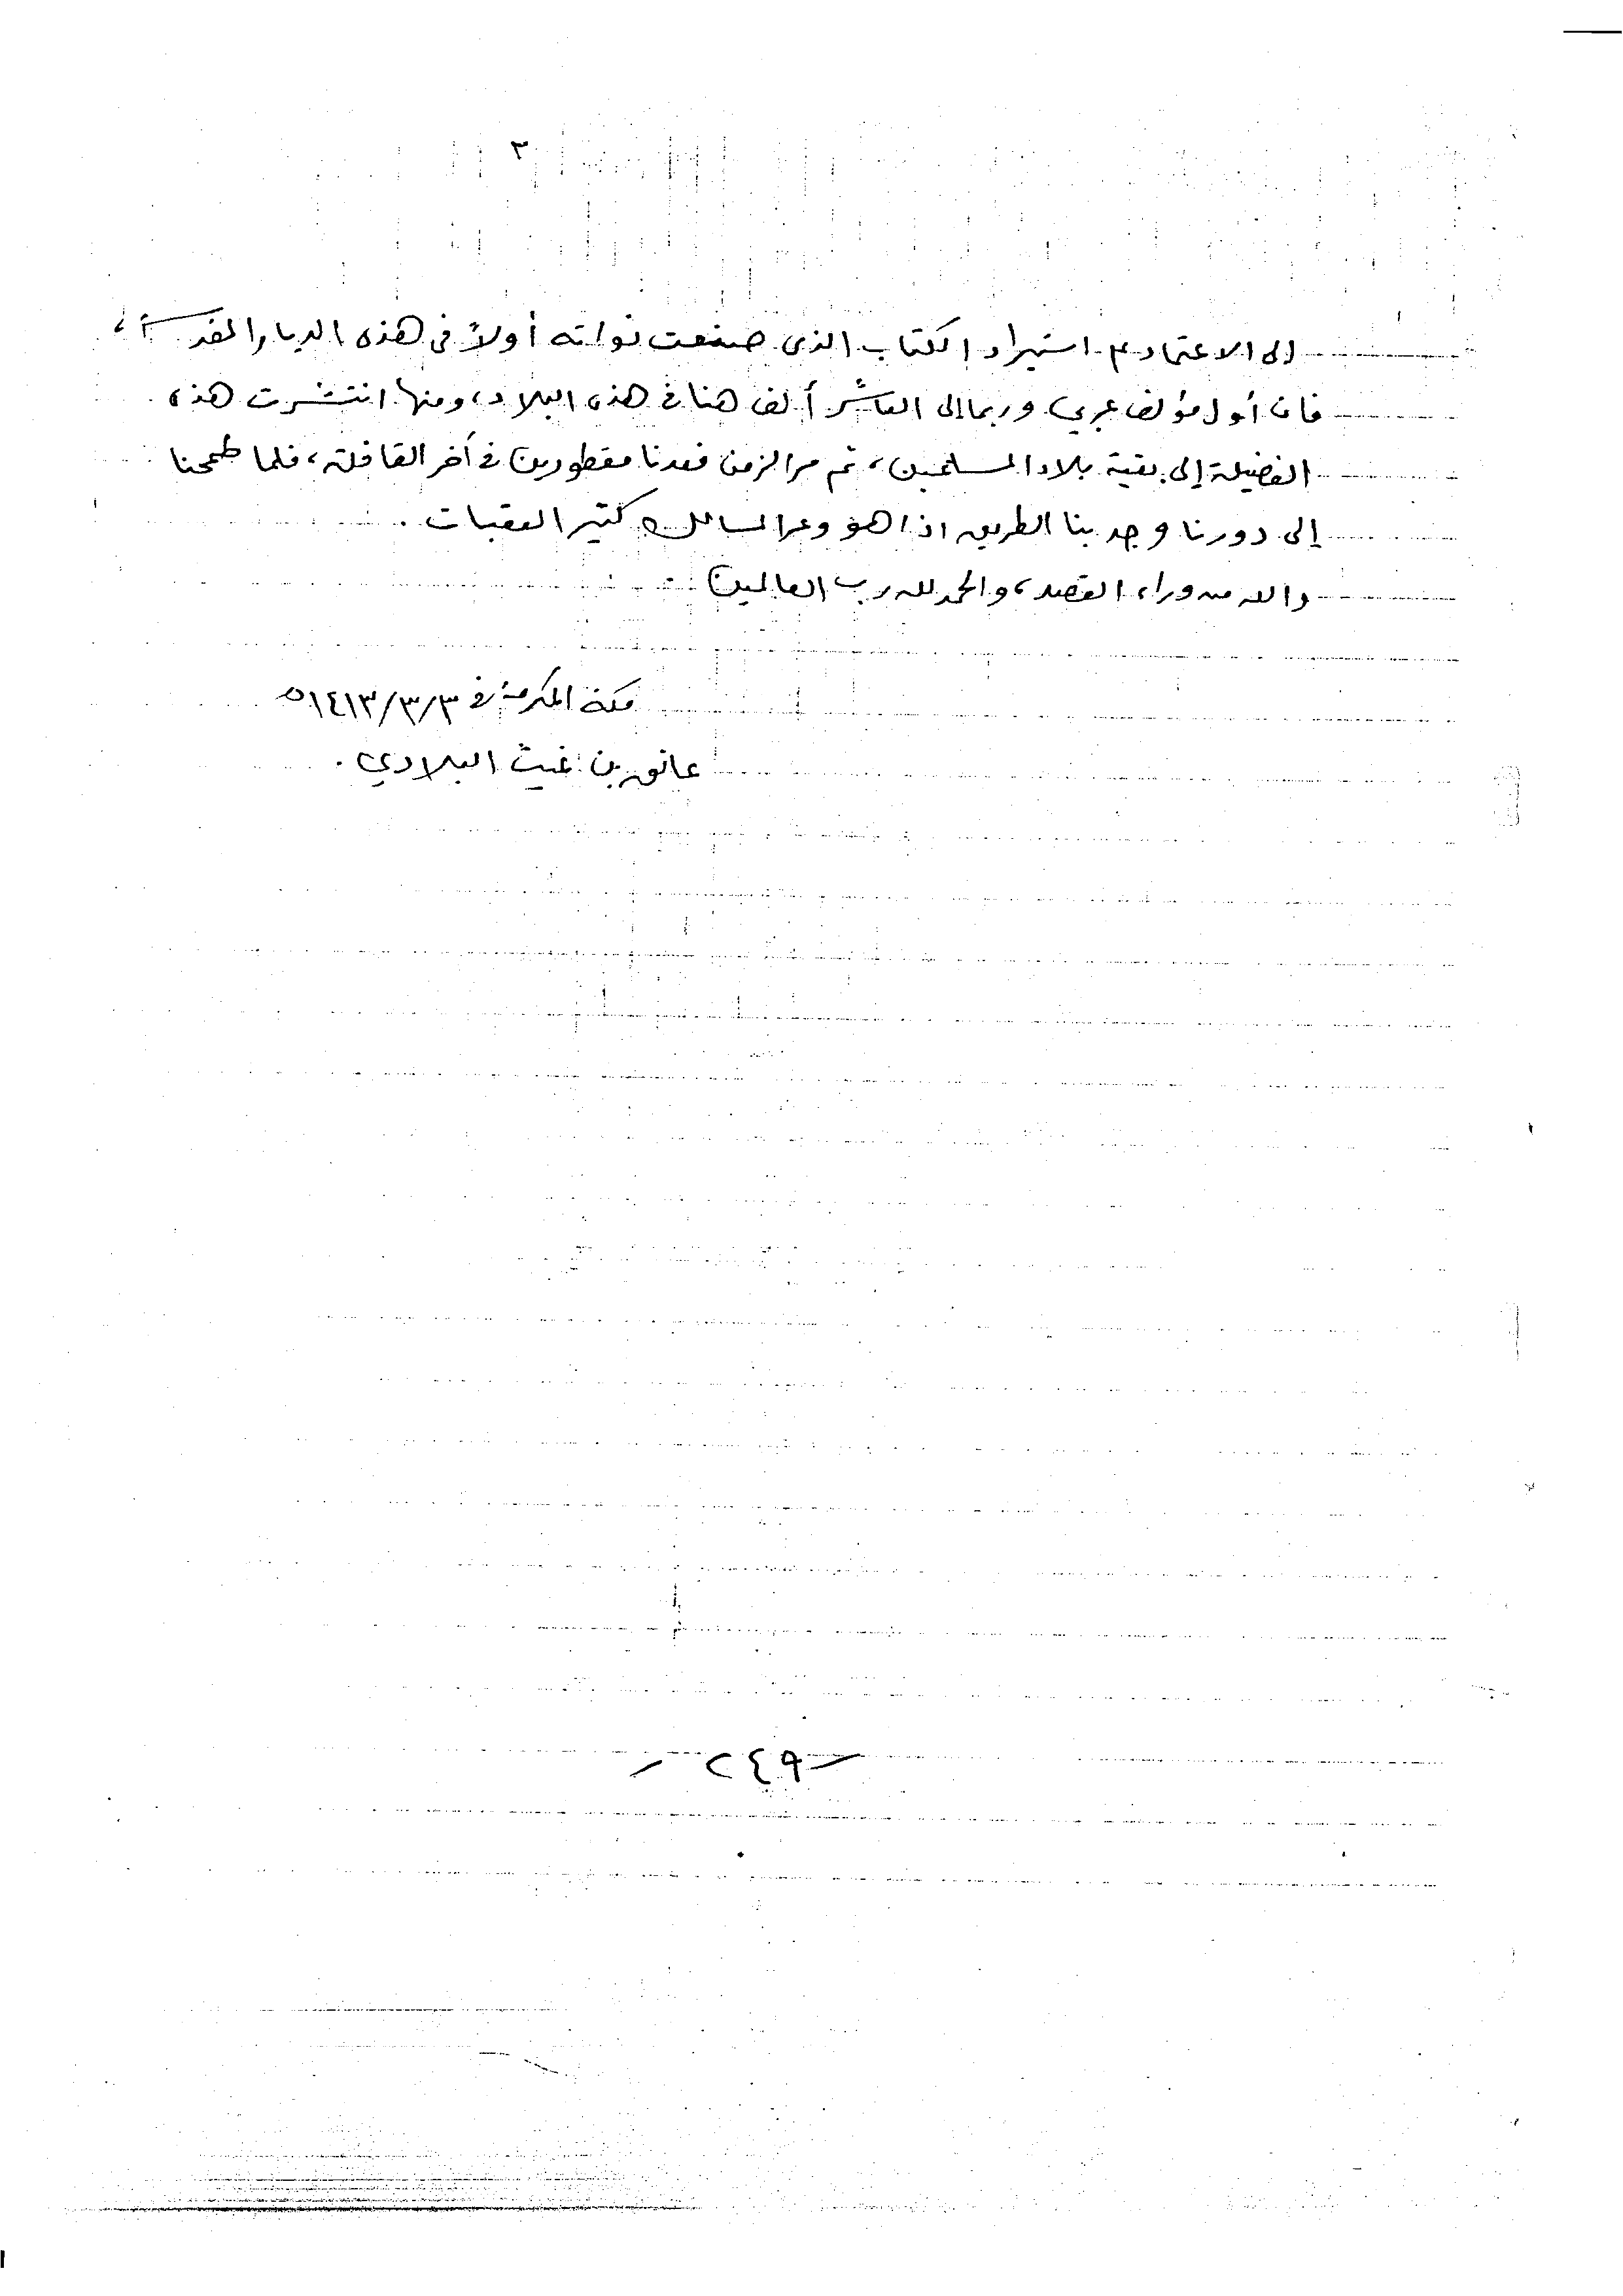 ٣
إلى الاعتماد على استيراد الكتاب الذي صنعت نواته أولاً في هذه الديار المقدسة،
فإن أول مؤلف عربي وربما إلى العاشر أُلف هنا في هذه البلاد، ومنها انتشرت هذه
الفضيلة إلى بقية بلاد المسلمين، ثم مر الزمن فعدنا مقطورين في آخر القافلة، فلما طمحنا
إلى دورنا وجد بنا الطريق اذا هو وعر المسالك كثير العقبات .
والله من وراء القصد، والحمد لله رب العالمين
مكة المكرمة في ٣/٣/١٤١٣هـ
عاتق بن غيث البلادي .
- ٢٤٩ -